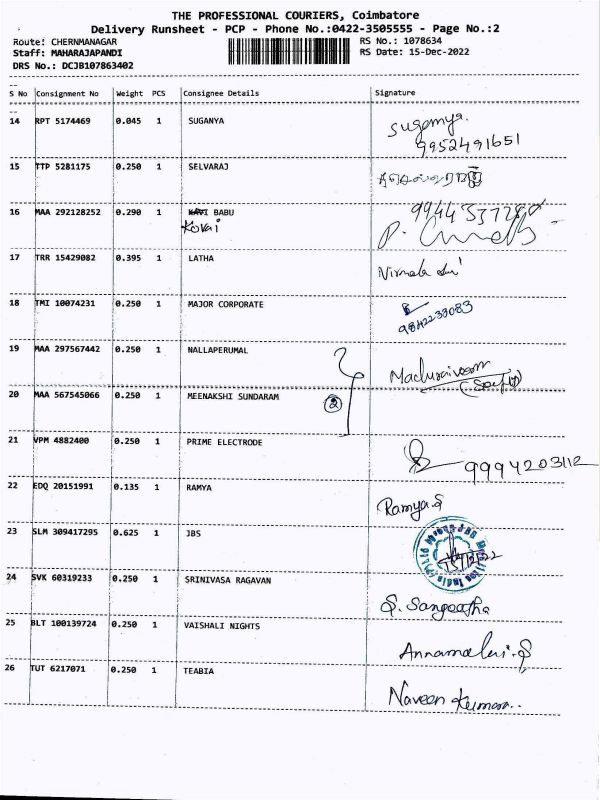 THE PROFESSIONAL COURIERS, Coimbatore
Delivery Runsheet - PCP - Phone No.:0422-3505555 - Page No.:2
Route: CHERNMANAGAR RS No.: 1078634
Staff: MAHARAJAPANDI RS Date: 15-Dec-2022
DRS No.: DCJB107863402
S No Consignment No Weight PCS Consignee Details Signature
14 RPT 5174469 0.045 1 SUGANYA Suganya.
9952491651
15 TTP 5281175 0.250 1 SELVARAJ
16 MAA 292128252 0.290 1 BABU
Kovai
17 TRR 15429082 0.395 1 LATHA Nirmala
18 TMI 10074231 0.250 1 MAJOR CORPORATE
9842233083
19 MAA 297567442 0.250 1 NALLAPERUMAL
20 MAA 567545066 0.250 1 MEENAKSHI SUNDARAM 2
21 VPM 4882400 0.250 1 PRIME ELECTRODE
9994203112
22 EDQ 20151991 0.135 1 RAMYA Ramya.S
23 SLM 309417295 0.625 1 JBS
24 SVK 60319233 0.250 1 SRINIVASA RAGAVAN S. Sangeetha
25 BLT 100139724 0.250 1 VAISHALI NIGHTS Annamalai.S
26 TUT 6217071 0.250 1 TEABIA Naveen Kumar..